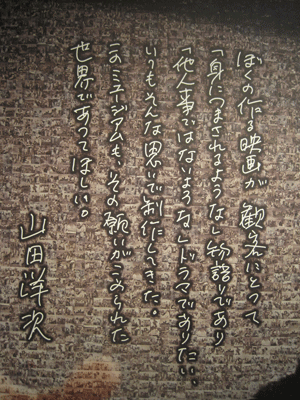 ぼくの作る映画が 観客にとって
「身につまされるような」物語りであり
「他人事ではないような」ドラマでありたい、
いつもそんな思いで制作してきた。
このミュージアムも、その願いがこめられた
世界であってほしい。
山田洋次